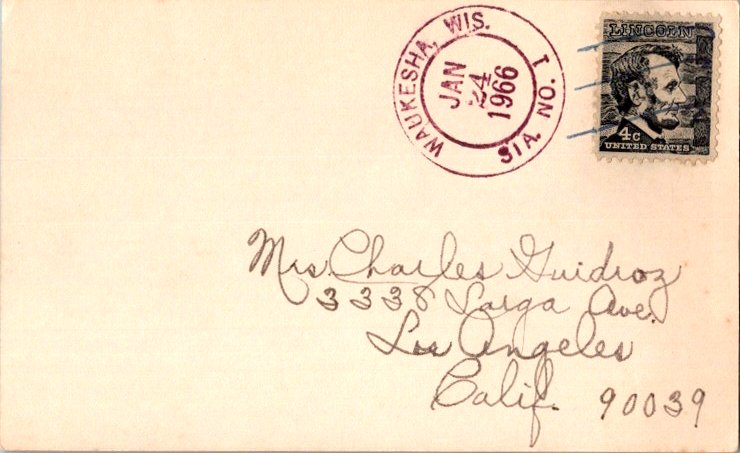 WAUKESHA, WIS.
JAN
24
1966
STA. NO. 1
LINCOLN
4c
UNITED STATES
Mrs. Charles Guidroz
3338 Larga Ave.
Los Angeles
Calif. 90039